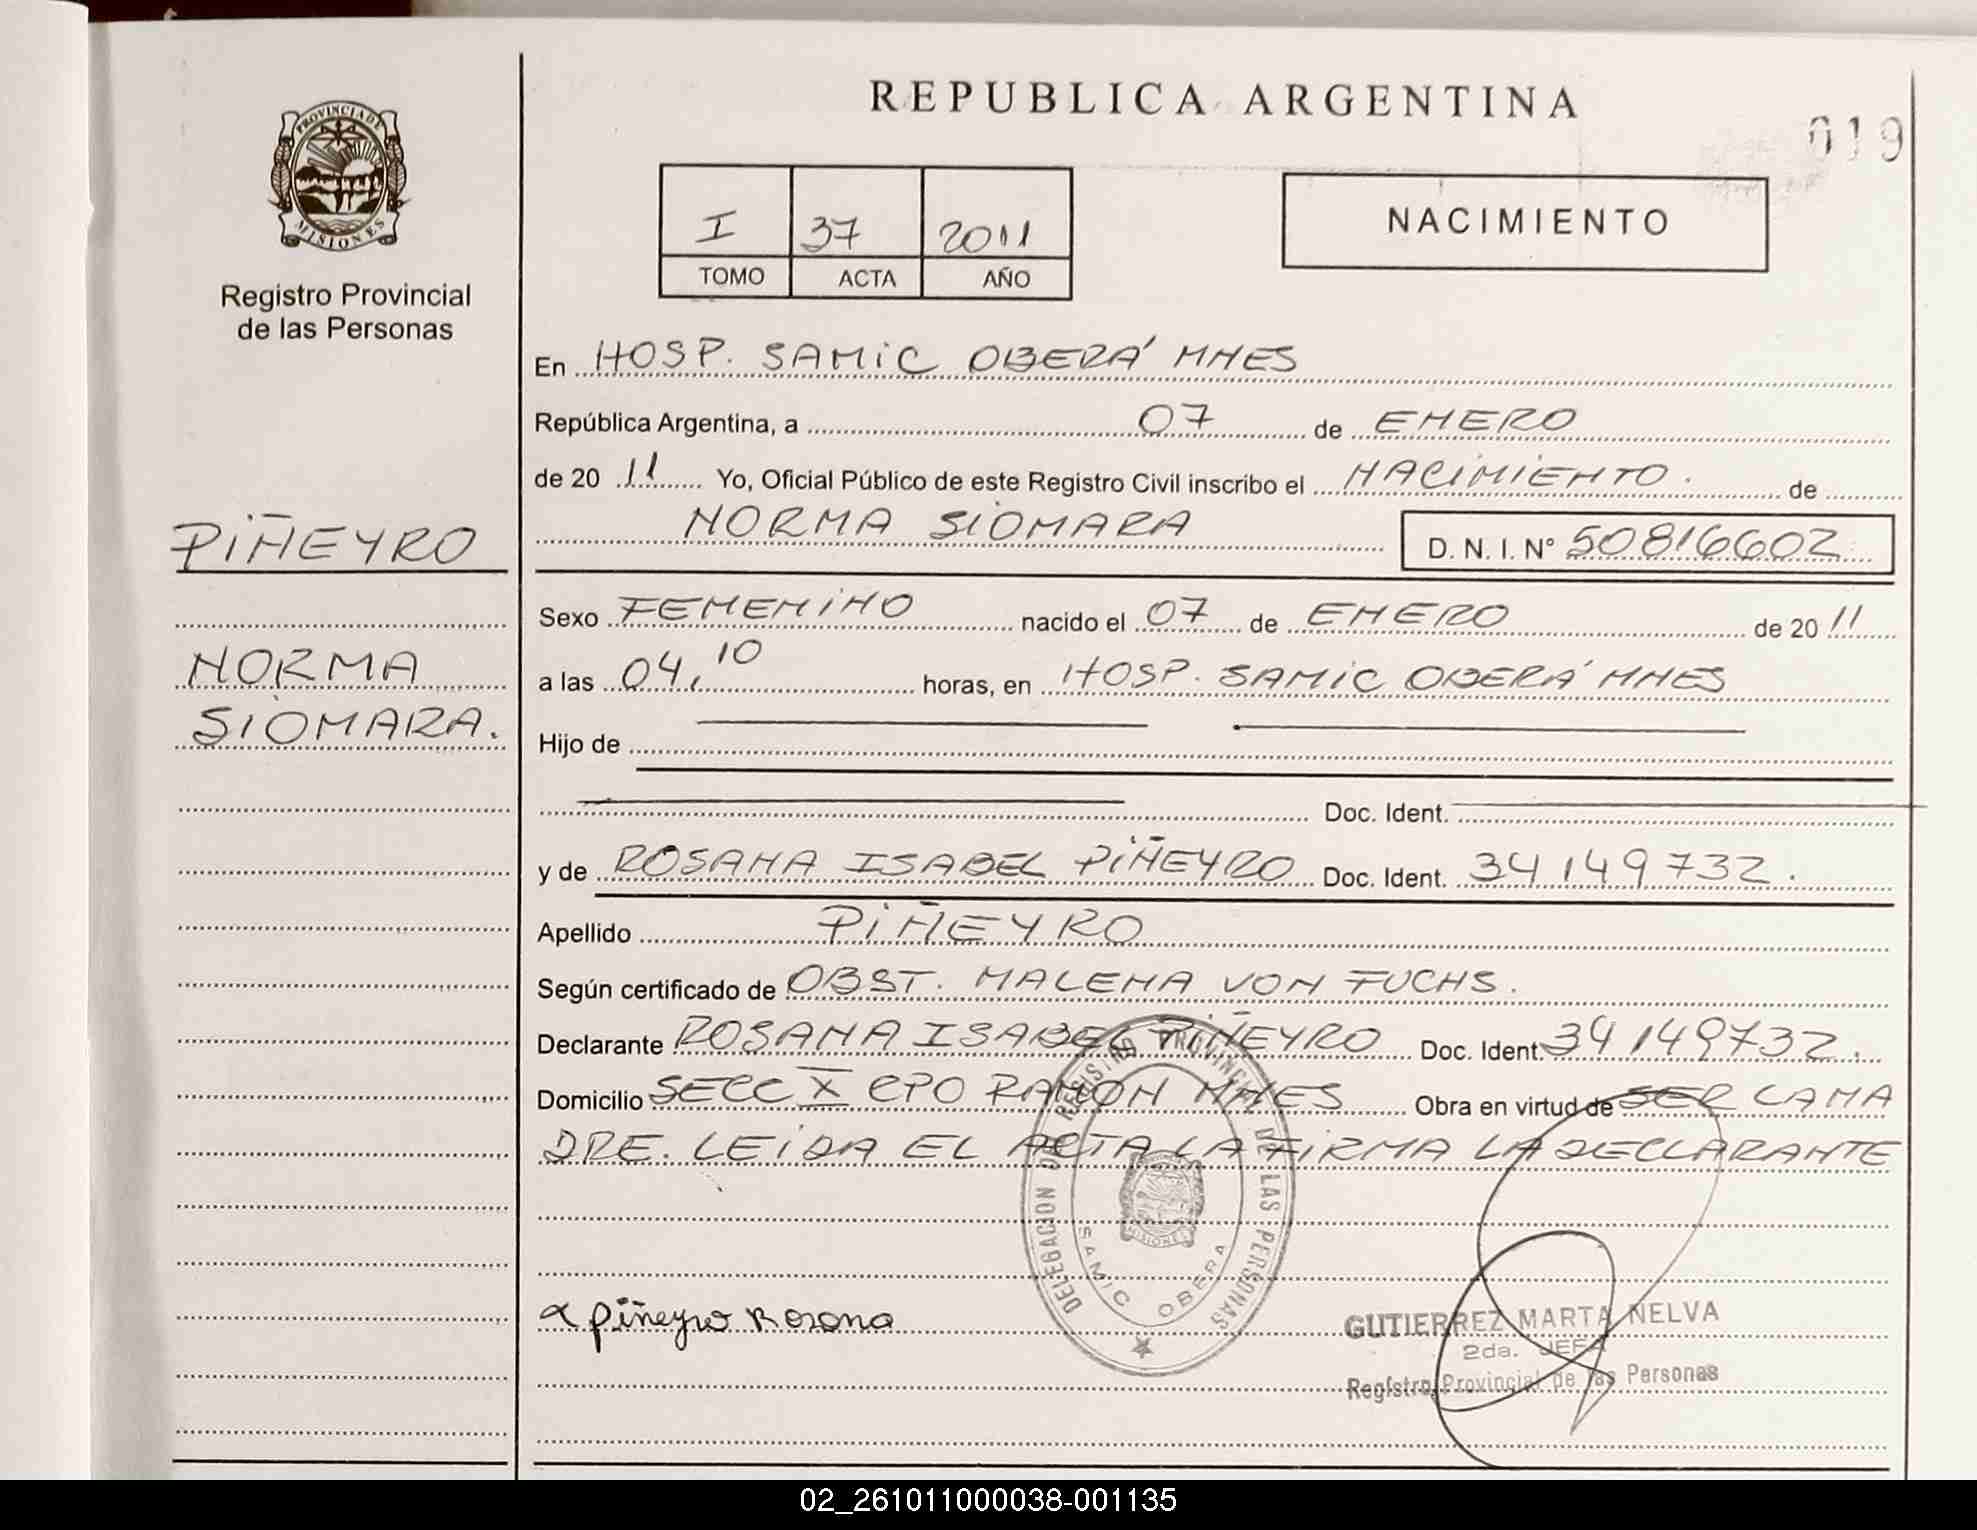 REPUBLICA ARGENTINA
019
PROVINCIA DE
MISIONES
Registro Provincial
de las Personas
I 37 2011
TOMO ACTA AÑO
NACIMIENTO
En HOSP. SAMIC OBERÁ MNES
República Argentina, a 07 de ENERO
de 20 11 Yo, Oficial Público de este Registro Civil inscribo el NACIMIENTO. de
NORMA SIOMARA D. N. I. Nº 50816602
PIÑEYRO
NORMA
SIOMARA.
Sexo FEMENINO nacido el 07 de ENERO de 20 11
a las 04,10 horas, en HOSP. SAMIC OBERÁ MNES
Hijo de
Doc. Ident.
y de ROSANA ISABEL PIÑEYRO Doc. Ident. 34149732.
Apellido PIÑEYRO
Según certificado de OBST. MALENA VON FUCHS.
Declarante ROSANA ISABEL PIÑEYRO Doc. Ident. 34149732.
Domicilio SECC X CPO RAMON MNES Obra en virtud de SER LA MA
DRE. LEIDA EL ACTA LA FIRMA LA DECLARANTE
DELEGACION DEL REGISTRO PROVINCIAL DE LAS PERSONAS
MISIONES
SAMIC OBERA
Piñeyro Rosana
GUTIERREZ MARTA NELVA
2da. JEFA
Registro Provincial de las Personas
02_261011000038-001135